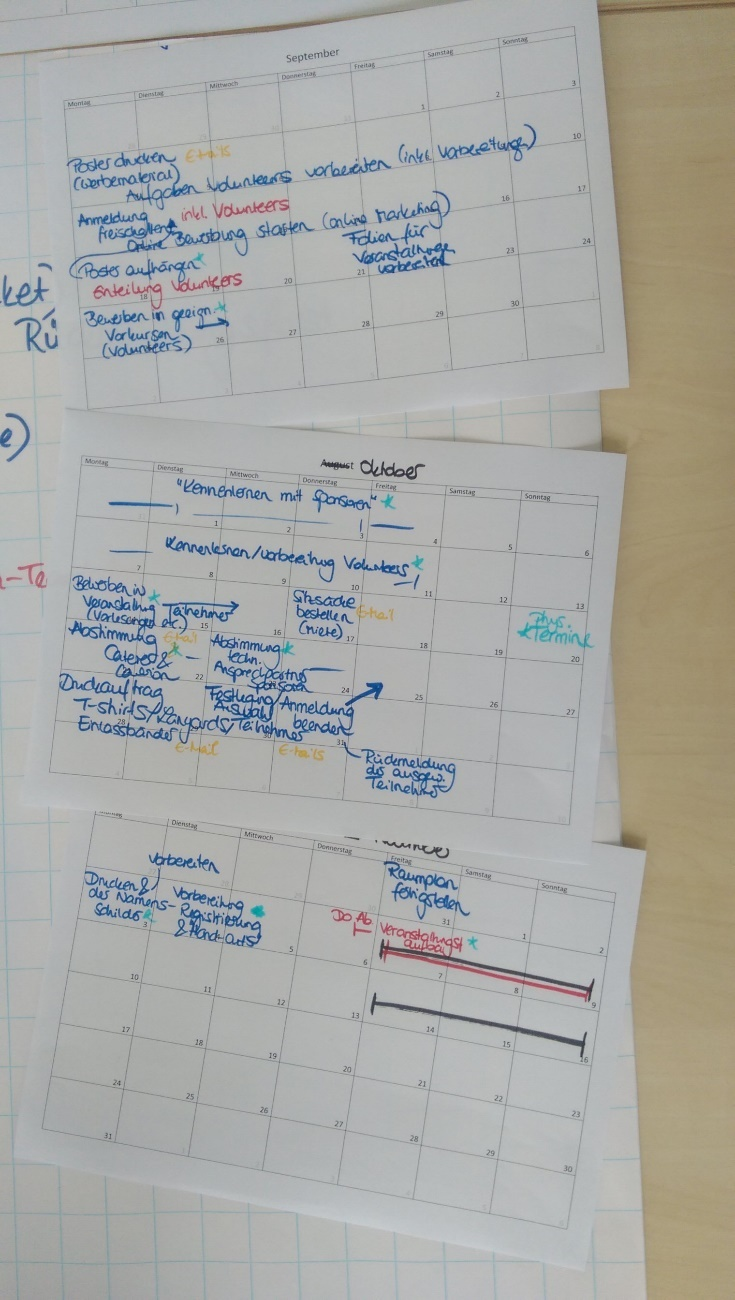 September
Montag Dienstag Mittwoch Donnerstag Freitag Samstag Sonntag
1 2 3
Poster drucken E-Mails
(Werbematerial)
Aufgaben Volunteers vorbereiten (inkl. Vorbereitung)
10
Anmeldung inkl. Volunteers
freischalten
Online Bewerbung starten (online Marketing)
16 17
Folien für
Veranstaltunge
vorbereiten
Poster aufhängen
Enteilung Volunteers
18 19 20 21 23 24
Bewerben in geeign.
Vorkursen
(Volunteers)
26 27 28 29 30
ket
Rü
e)
n-Te
August Oktober
Montag Dienstag Mittwoch Donnerstag Freitag Samstag Sonntag
"Kennenlernen mit Sponsoren"
1 2 3 4 5 6
Kennenlernen/Vorbereitung Volunteers
7 8 9 10 11 12 13
Bewerben in
Veranstaltung Teilnehmer
(Vorlesungen etc.)
Sitzsäcke
bestellen E-Mail
(Miete)
Phys.
Termine
15 16 17 18 19 20
Abstimmung E-Mail
Caterer &
Abstimmung
techn.
Ansprechpartner
Sponsoren
22 24 25 26 27
Druckauftrag
T-Shirts/Lanyards/
Einlassbänder
Festlegung/Anmeldung
Auswahl beenden
Teilnehmer
28 31
E-Mail E-Mails
Rückmeldung
des ausgew.
Teilnehmer
Dienstag Mittwoch Donnerstag Freitag Samstag Sonntag
Vorbereiten
Raumplan
fertigstellen
31 1 2
Drucken &
des Namens-
Schilds
Vorbereitung
Registrierung
& Handouts
Do, Ab
Veranstaltungs
aufbau
3 5 6 7 8 9
10 11 12 13 14 15 16
17 18 19 20 21 22 23
24 25 26 27 28 29 30
31